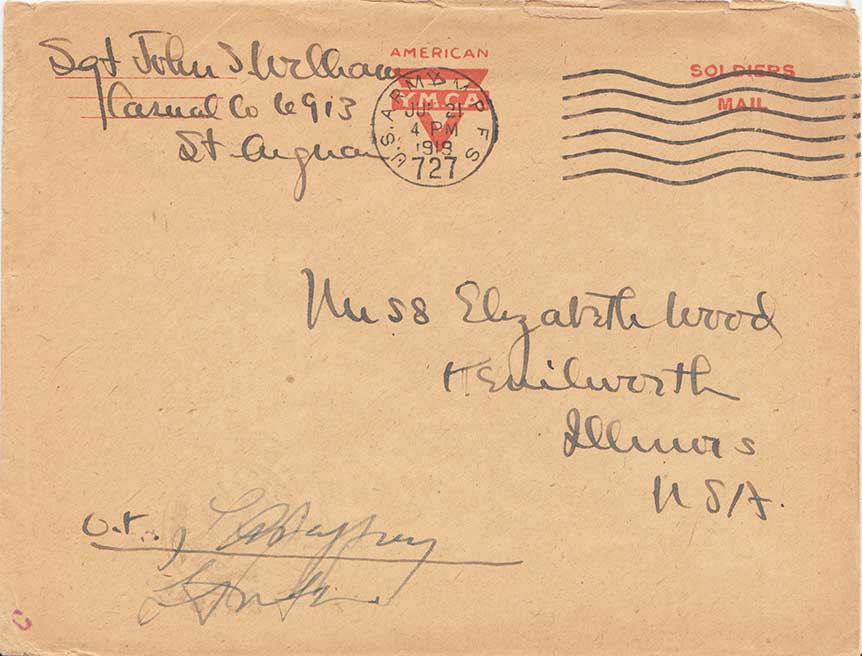 AMERICAN
Sgt John S Welham
YMCA
SOLDIERS
MAIL
Casual Co 6913
St. Aignan
U.S. ARMY M.P.E.S
JUL 21
4 PM
1919
727
Miss Elizabeth Wood
Kenilworth
Illinois
USA.
O.K.